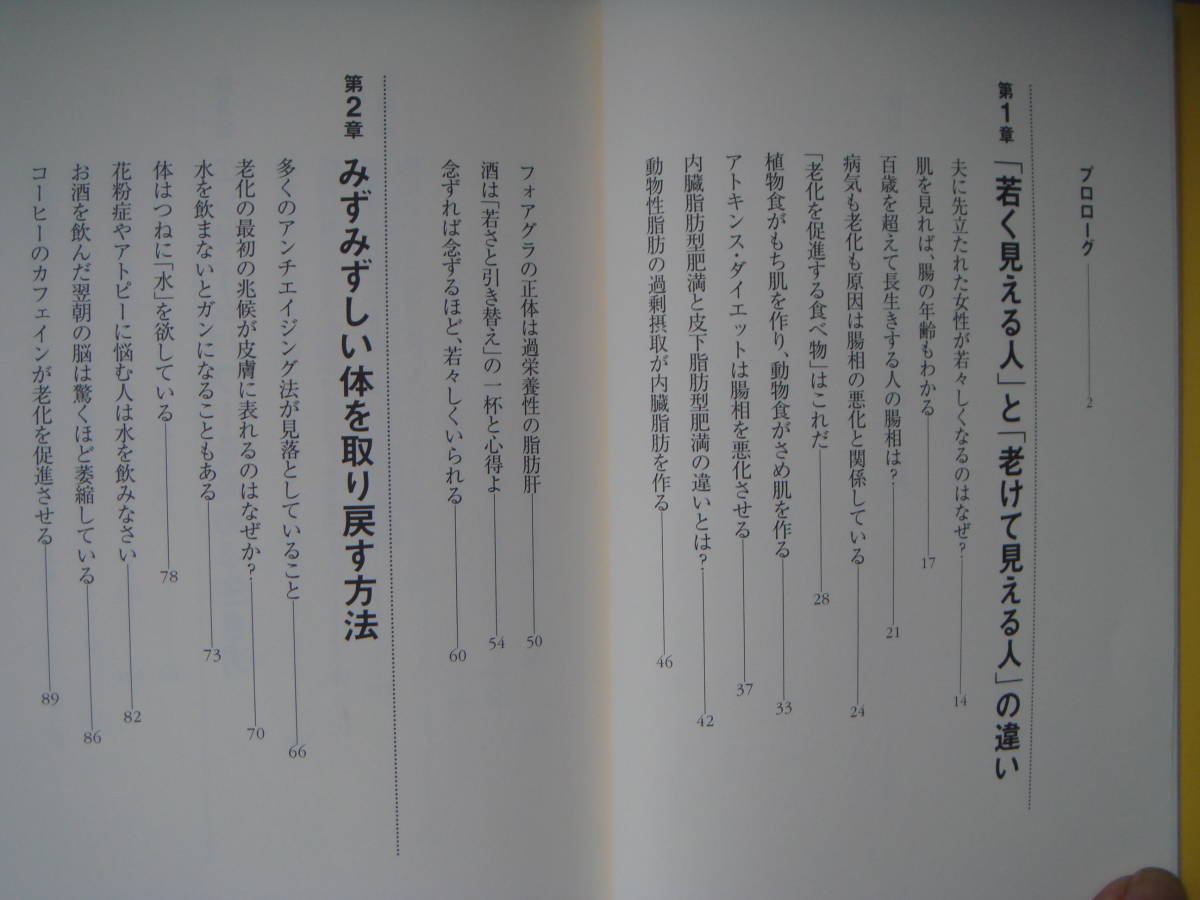 プロローグ 2
第1章 「若く見える人」と「老けて見える人」の違い
夫に先立たれた女性が若々しくなるのはなぜ? 14
肌を見れば、腸の年齢もわかる 17
百歳を超えて長生きする人の腸相は? 21
病気も老化も原因は腸相の悪化と関係している 24
「老化を促進する食べ物」はこれだ 28
植物食がもち肌を作り、動物食がさめ肌を作る 33
アトキンス・ダイエットは腸相を悪化させる 37
内臓脂肪型肥満と皮下脂肪型肥満の違いとは? 42
動物性脂肪の過剰摂取が内臓脂肪を作る 46
フォアグラの正体は過栄養性の脂肪肝 50
酒は「若さと引き替え」の一杯と心得よ 54
念ずれば念ずるほど、若々しくいられる 60
第2章 みずみずしい体を取り戻す方法
多くのアンチエイジング法が見落としていること 66
老化の最初の兆候が皮膚に表れるのはなぜか? 70
水を飲まないとガンになることもある 73
体はつねに「水」を欲している 78
花粉症やアトピーに悩む人は水を飲みなさい 82
お酒を飲んだ翌朝の脳は驚くほど萎縮している 86
コーヒーのカフェインが老化を促進させる 89